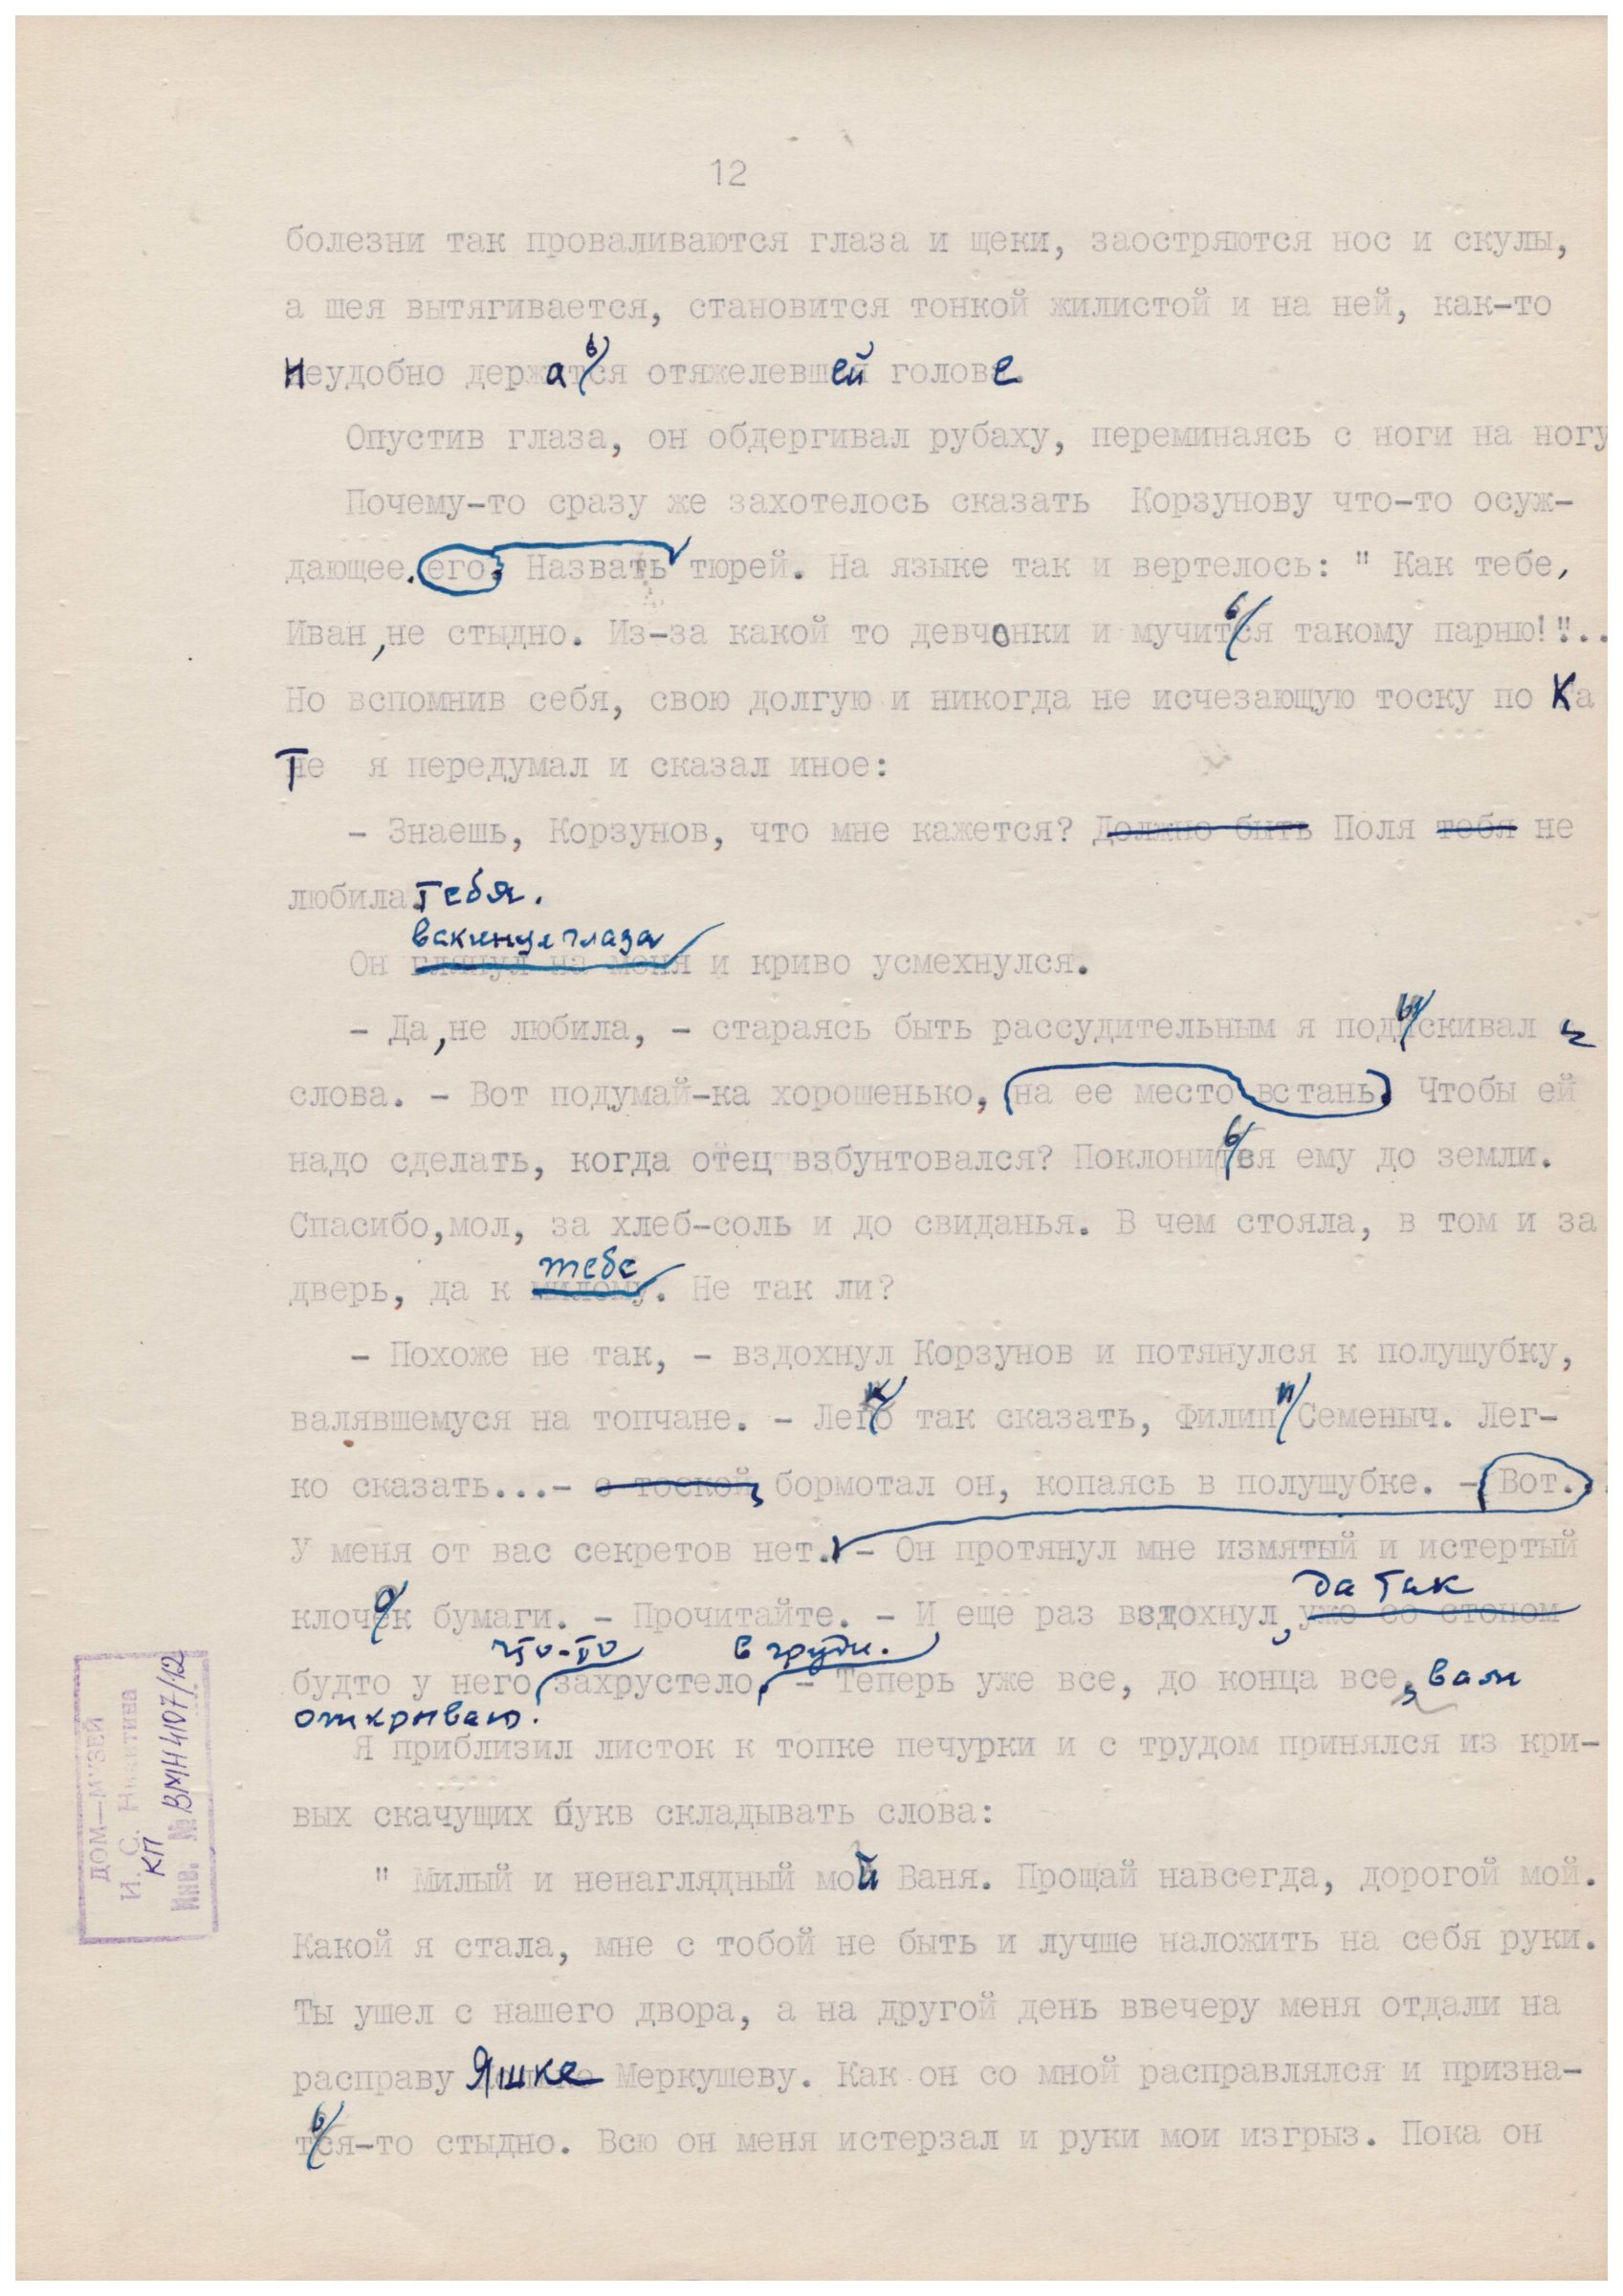 12
болезни так проваливаются глаза и щеки, заостряются нос и скулы,
а шея вытягивается, становится тонкой жилистой и на ней, как-то
неудобно держаться отяжелевшей голове.
Опустив глаза, он обдергивал рубаху, переминаясь с ноги на ногу
Почему-то сразу же захотелось сказать Корзунову что-то осуж-
дающее. его. Назвать тюрей. На языке так и вертелось: " Как тебе,
Иван, не стыдно. Из-за какой то девчонки и мучиться такому парню!"..
Но вспомнив себя, свою долгую и никогда не исчезающую тоску по Ка
Те я передумал и сказал иное:
- Знаешь, Корзунов, что мне кажется? Должно быть Поля тебя не
любила тебя.
вскинул глаза
Он глянул на меня и криво усмехнулся.
- Да, не любила, - стараясь быть рассудительным я подыскивал
слова. - Вот подумай-ка хорошенько, на ее место встань. Чтобы ей
надо сделать, когда отец взбунтовался? Поклониться ему до земли.
Спасибо, мол, за хлеб-соль и до свиданья. В чем стояла, в том и за
тебе
дверь, да к милому. Не так ли?
- Похоже не так, - вздохнул Корзунов и потянулся к полушубку,
валявшемуся на топчане. - Легко так сказать, Филипп Семеныч. Лег-
ко сказать...- с тоской, бормотал он, копаясь в полушубке. - Вот.
У меня от вас секретов нет. - Он протянул мне измятый и истертый
да так
клочок бумаги. - Прочитайте. - И еще раз вздохнул, уже со стоном
что-то в груди.
будто у него захрустело. - Теперь уже все, до конца все, вам
открываю.
Я приблизил листок к топке печурки и с трудом принялся из кри-
вых скачущих букв складывать слова:
" Милый и ненаглядный мой Ваня. Прощай навсегда, дорогой мой.
Какой я стала, мне с тобой не быть и лучше наложить на себя руки.
Ты ушел с нашего двора, а на другой день ввечеру меня отдали на
расправу Яшке Меркушеву. Как он со мной расправлялся и призна-
ться-то стыдно. Всю он меня истерзал и руки мои изгрыз. Пока он
ДОМ—МУЗЕЙ
И. С. Никитина
КП
Инв. № ВМН 4107/12